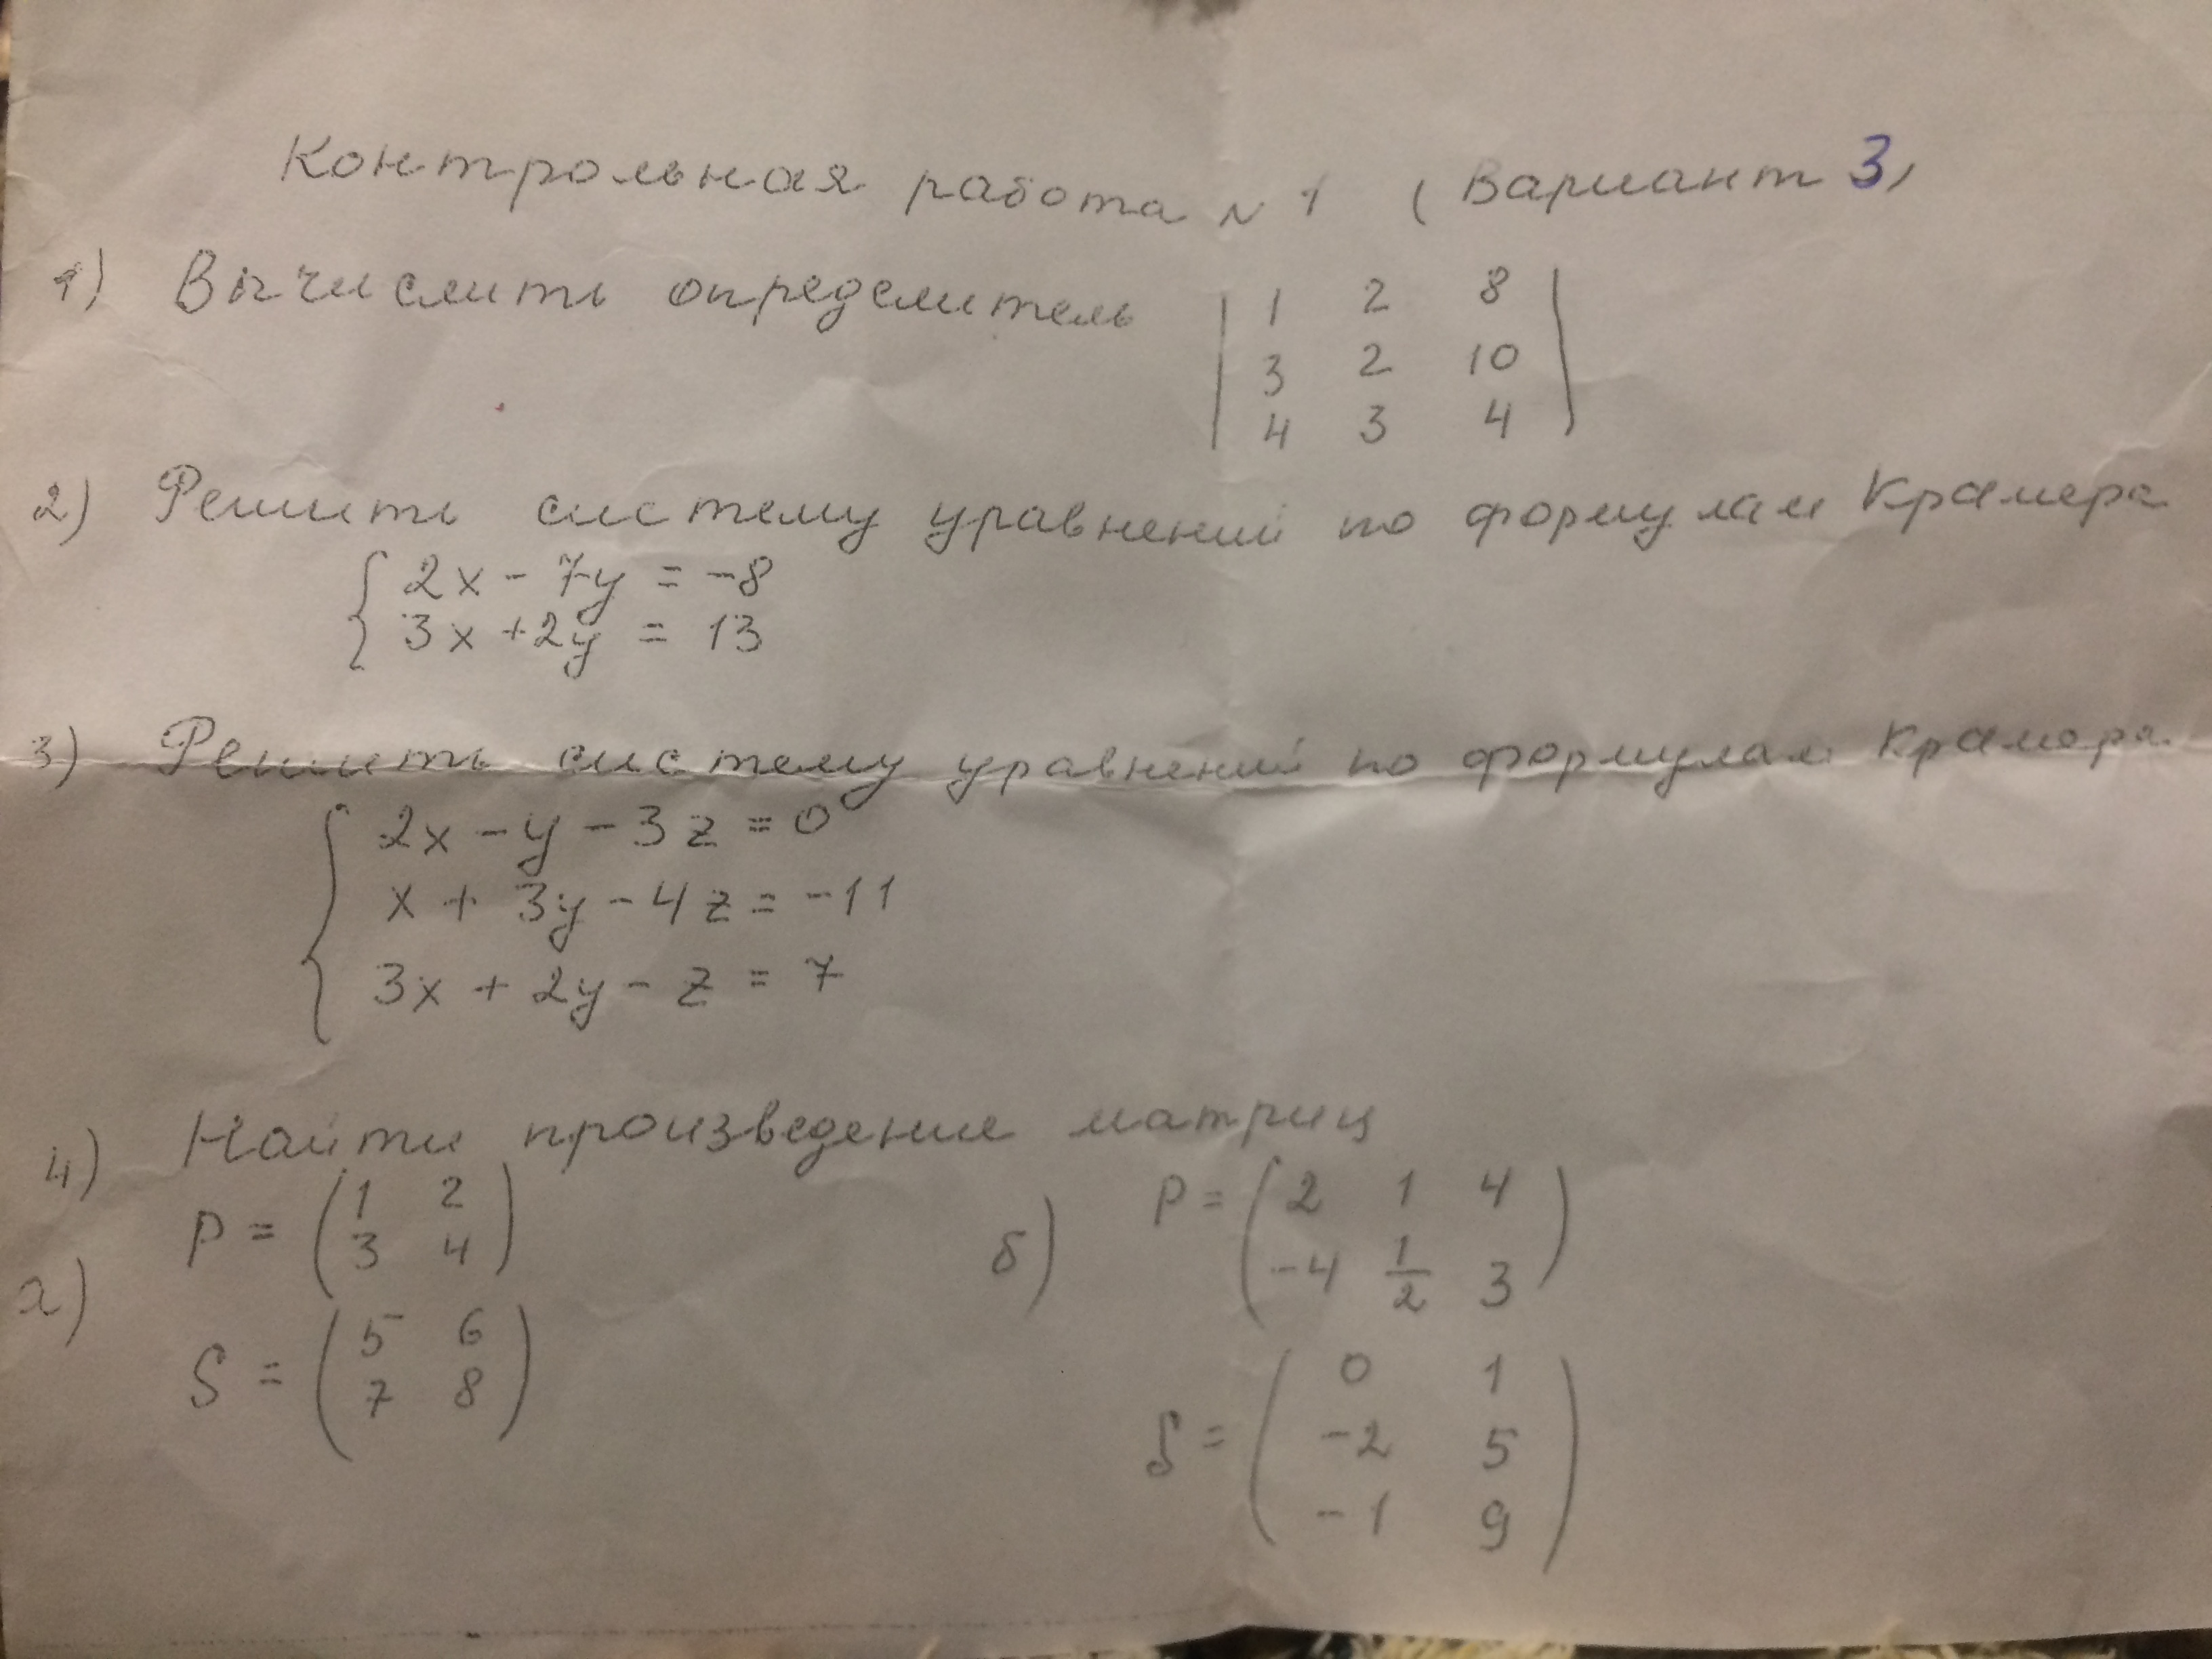 Контрольная работа N 1 (Вариант 3)
1) Вычислить определитель | 1 2 8 |
3 2 10
4 3 4
2) Решить систему уравнений по формулам Крамера
{ 2x - 7y = -8
3x + 2y = 13
3) Решить систему уравнений по формулам Крамера
{ 2x - y - 3z = 0
x + 3y - 4z = -11
3x + 2y - z = 7
4) Найти произведение матриц
а) P = ( 1 2
3 4 )
S = ( 5 6
7 8 )
б) P = ( 2 1 4
-4 1/2 3 )
S = ( 0 1
-2 5
-1 9 )